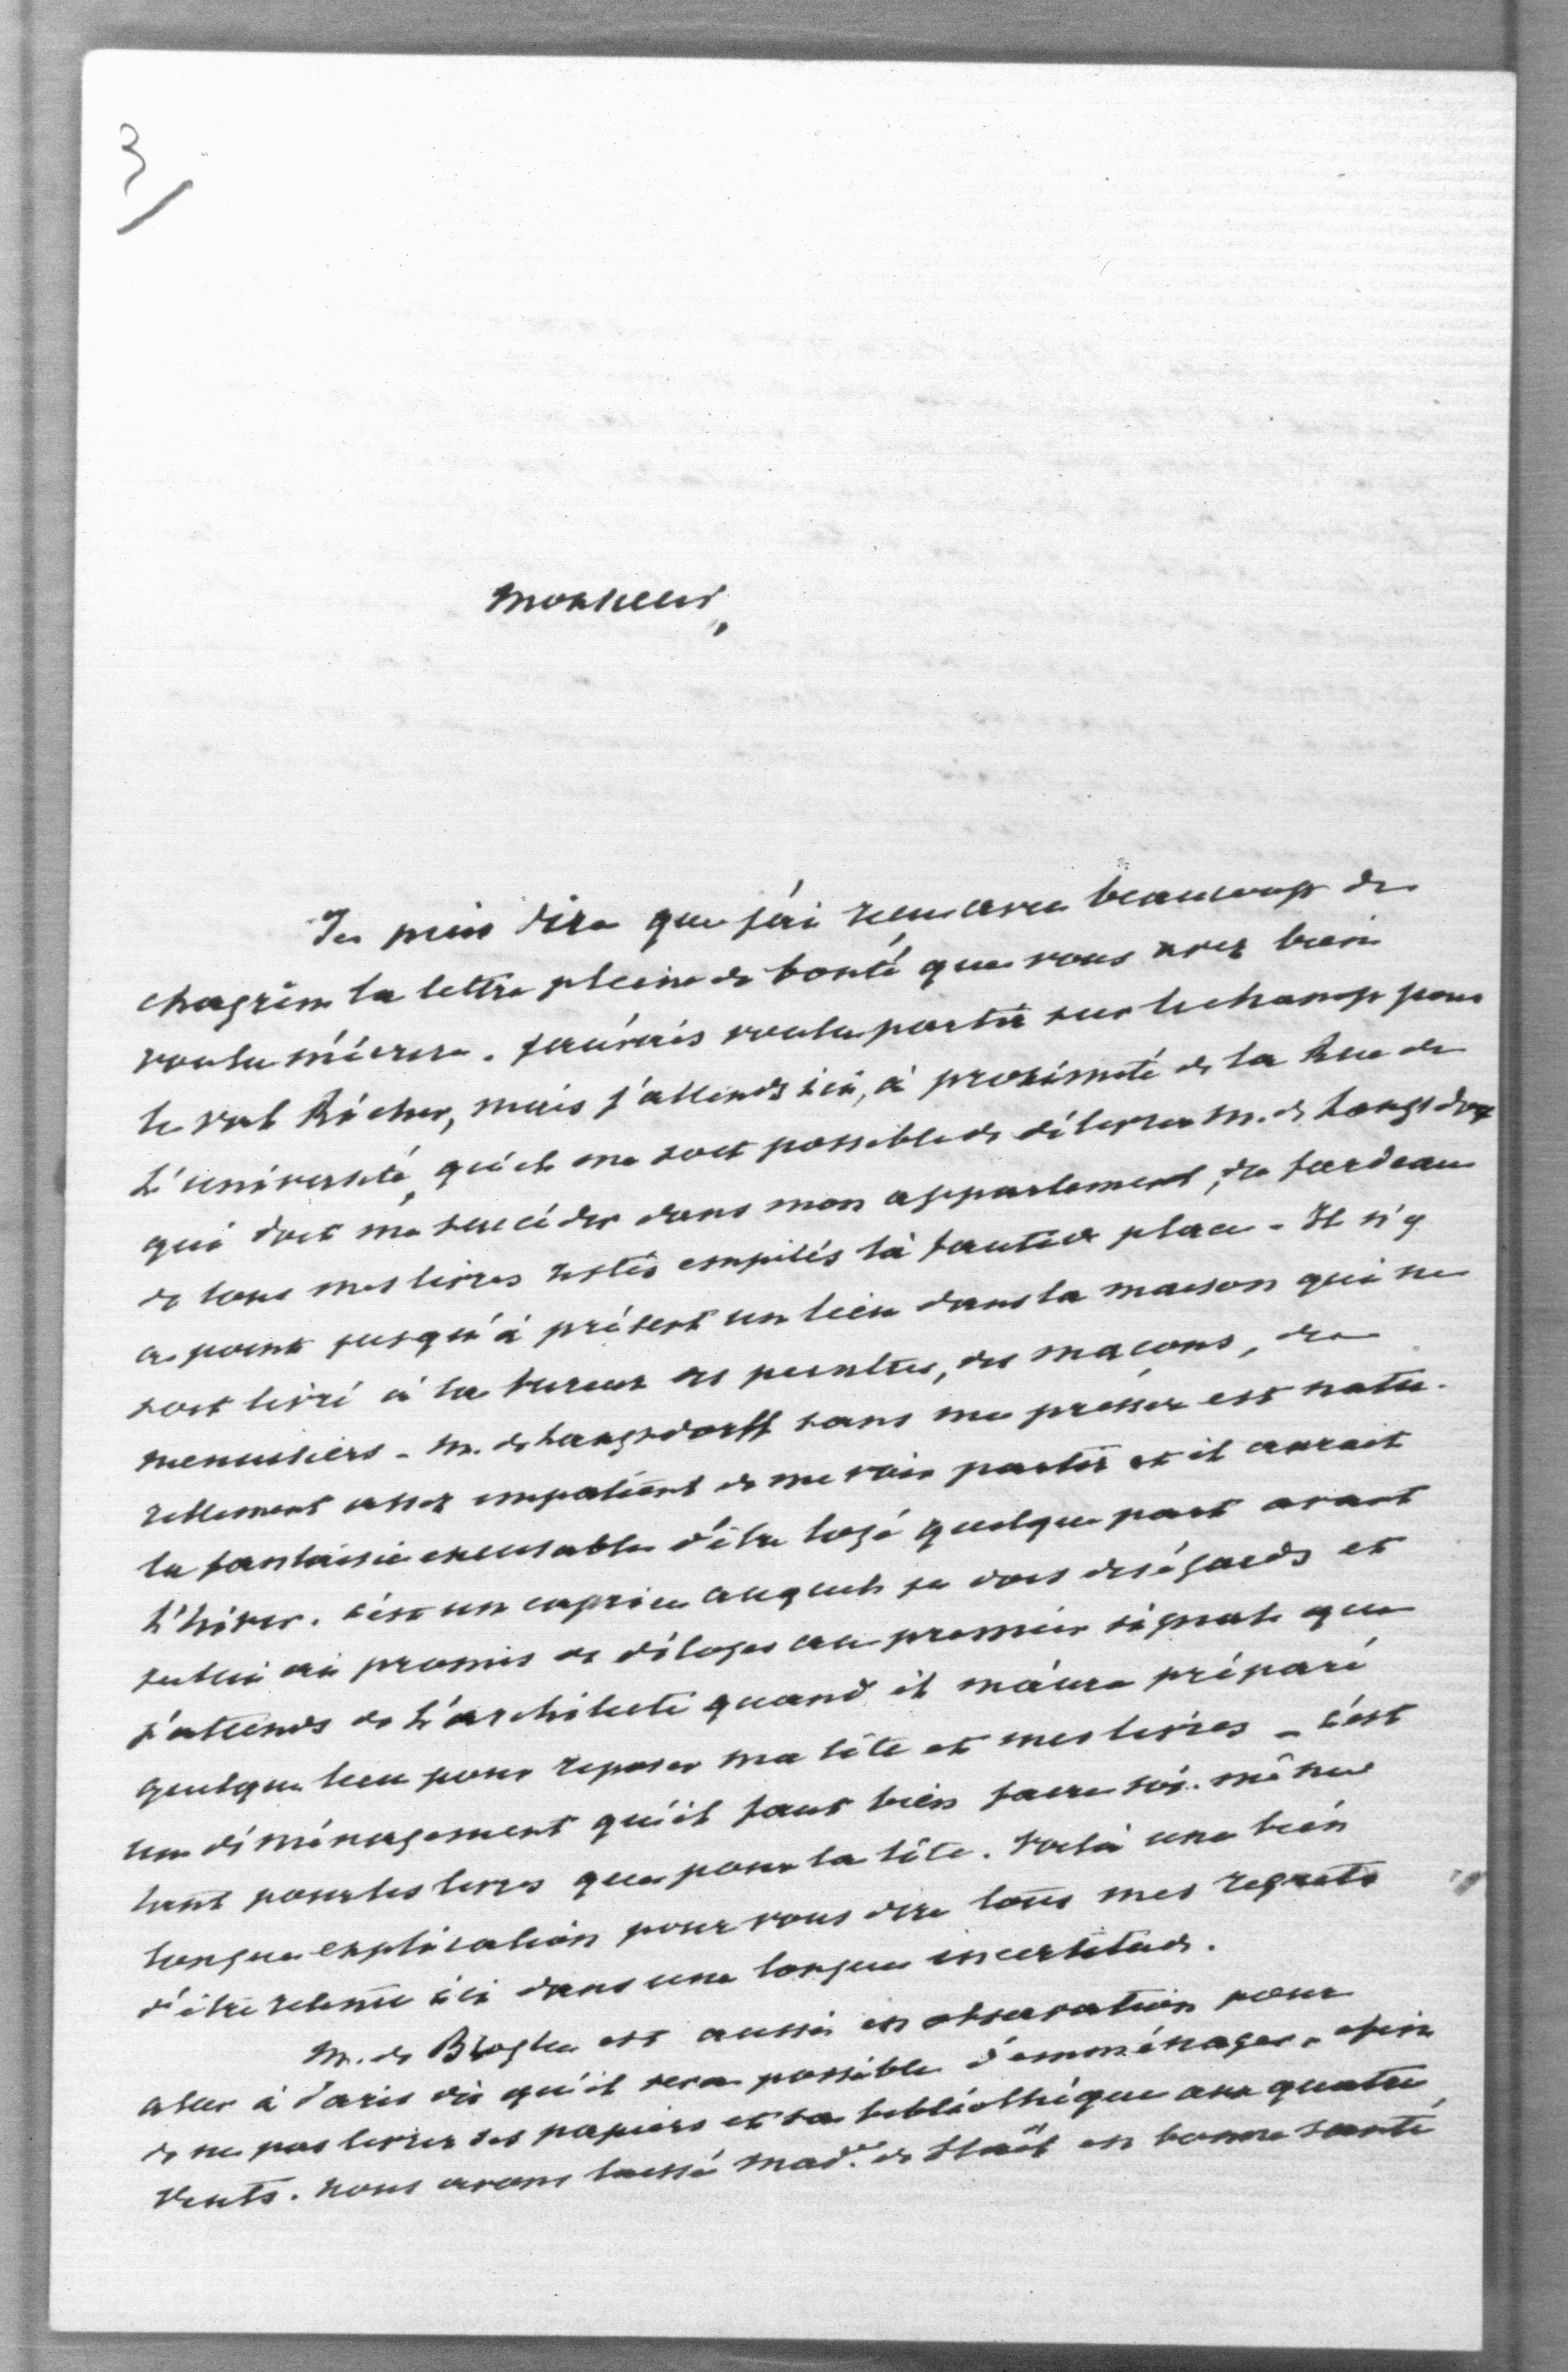 3
Monsieur,
Je puis dire que j'ai reçu avec beaucoup de
chagrin la lettre pleine de bonté que vous avez bien
voulu m'écrire. J'aurais voulu partir sur le champ pour
le Val Richer, mais j'attends ici, à proximité de la Rue de
l'université, qu'il me soit possible de délivrer M. de Langsdorff
qui doit me succéder dans mon appartement, du fardeau
de tous mes livres restés empilés là faute de place. Il n'y
a point jusqu'à présent un lieu dans la maison qui ne
soit livré à la fureur des peintres, des maçons, des
menuisiers. M. de Langsdorff sans me presser est natu-
rellement assez impatient de me voir partir et il aurait
la fantaisie excusable d'être logé quelque part avant
l'hiver. C'est un caprice auquel je dois des égards et
je lui ai promis de déloger au premier signal que
j'attends de l'architecte quand il m'aura préparé
quelque lieu pour reposer ma tête et mes livres - c'est
un déménagement qu'il faut bien faire soi-même
tant pour les livres que pour la tête. Voilà une bien
longue explication pour vous dire tous mes regrets
d'être retenu ici dans une longue incertitude.
M. de Broglie est aussi en observation pour
aller à Paris dès qu'il sera possible d'emménager afin
de ne pas livrer ses papiers et sa bibliothèque aux quatre
vents. Nous avons laissé Mad.e de Staël en bonne santé